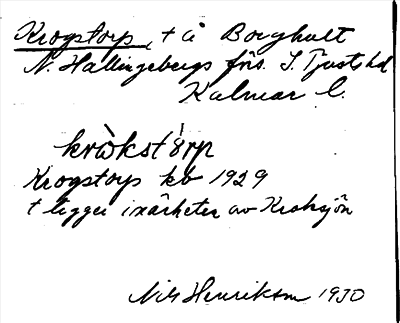 Krogstorp, t å Borghult
N. Hallingebergs förs. S. Tjusts hd
Kalmar l.
kròkstårp
Krogstorp kb 1929
t ligger i närheten av Kroksjön
Nils Henrikson 1930